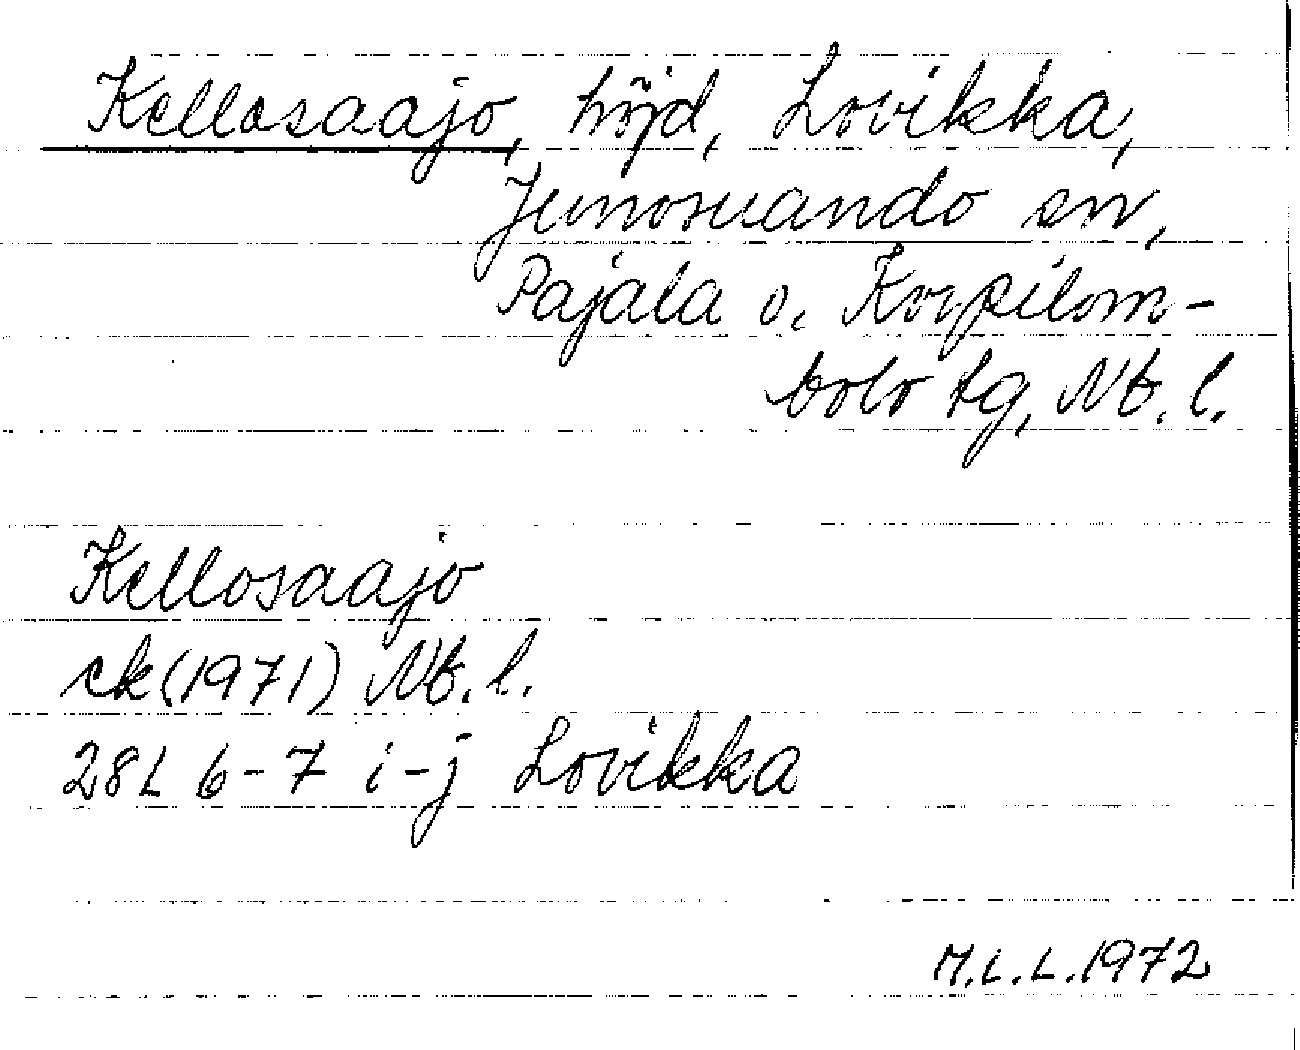 Kellosaajo, höjd, Lovikka,
Junosuando sn,
Pajala o. Korpilom-
bolo tg, Nb. l.
Kellosaajo
ek (1971) Nb. l.
28L 6-7 i-j Lovikka
M.L.L. 1972